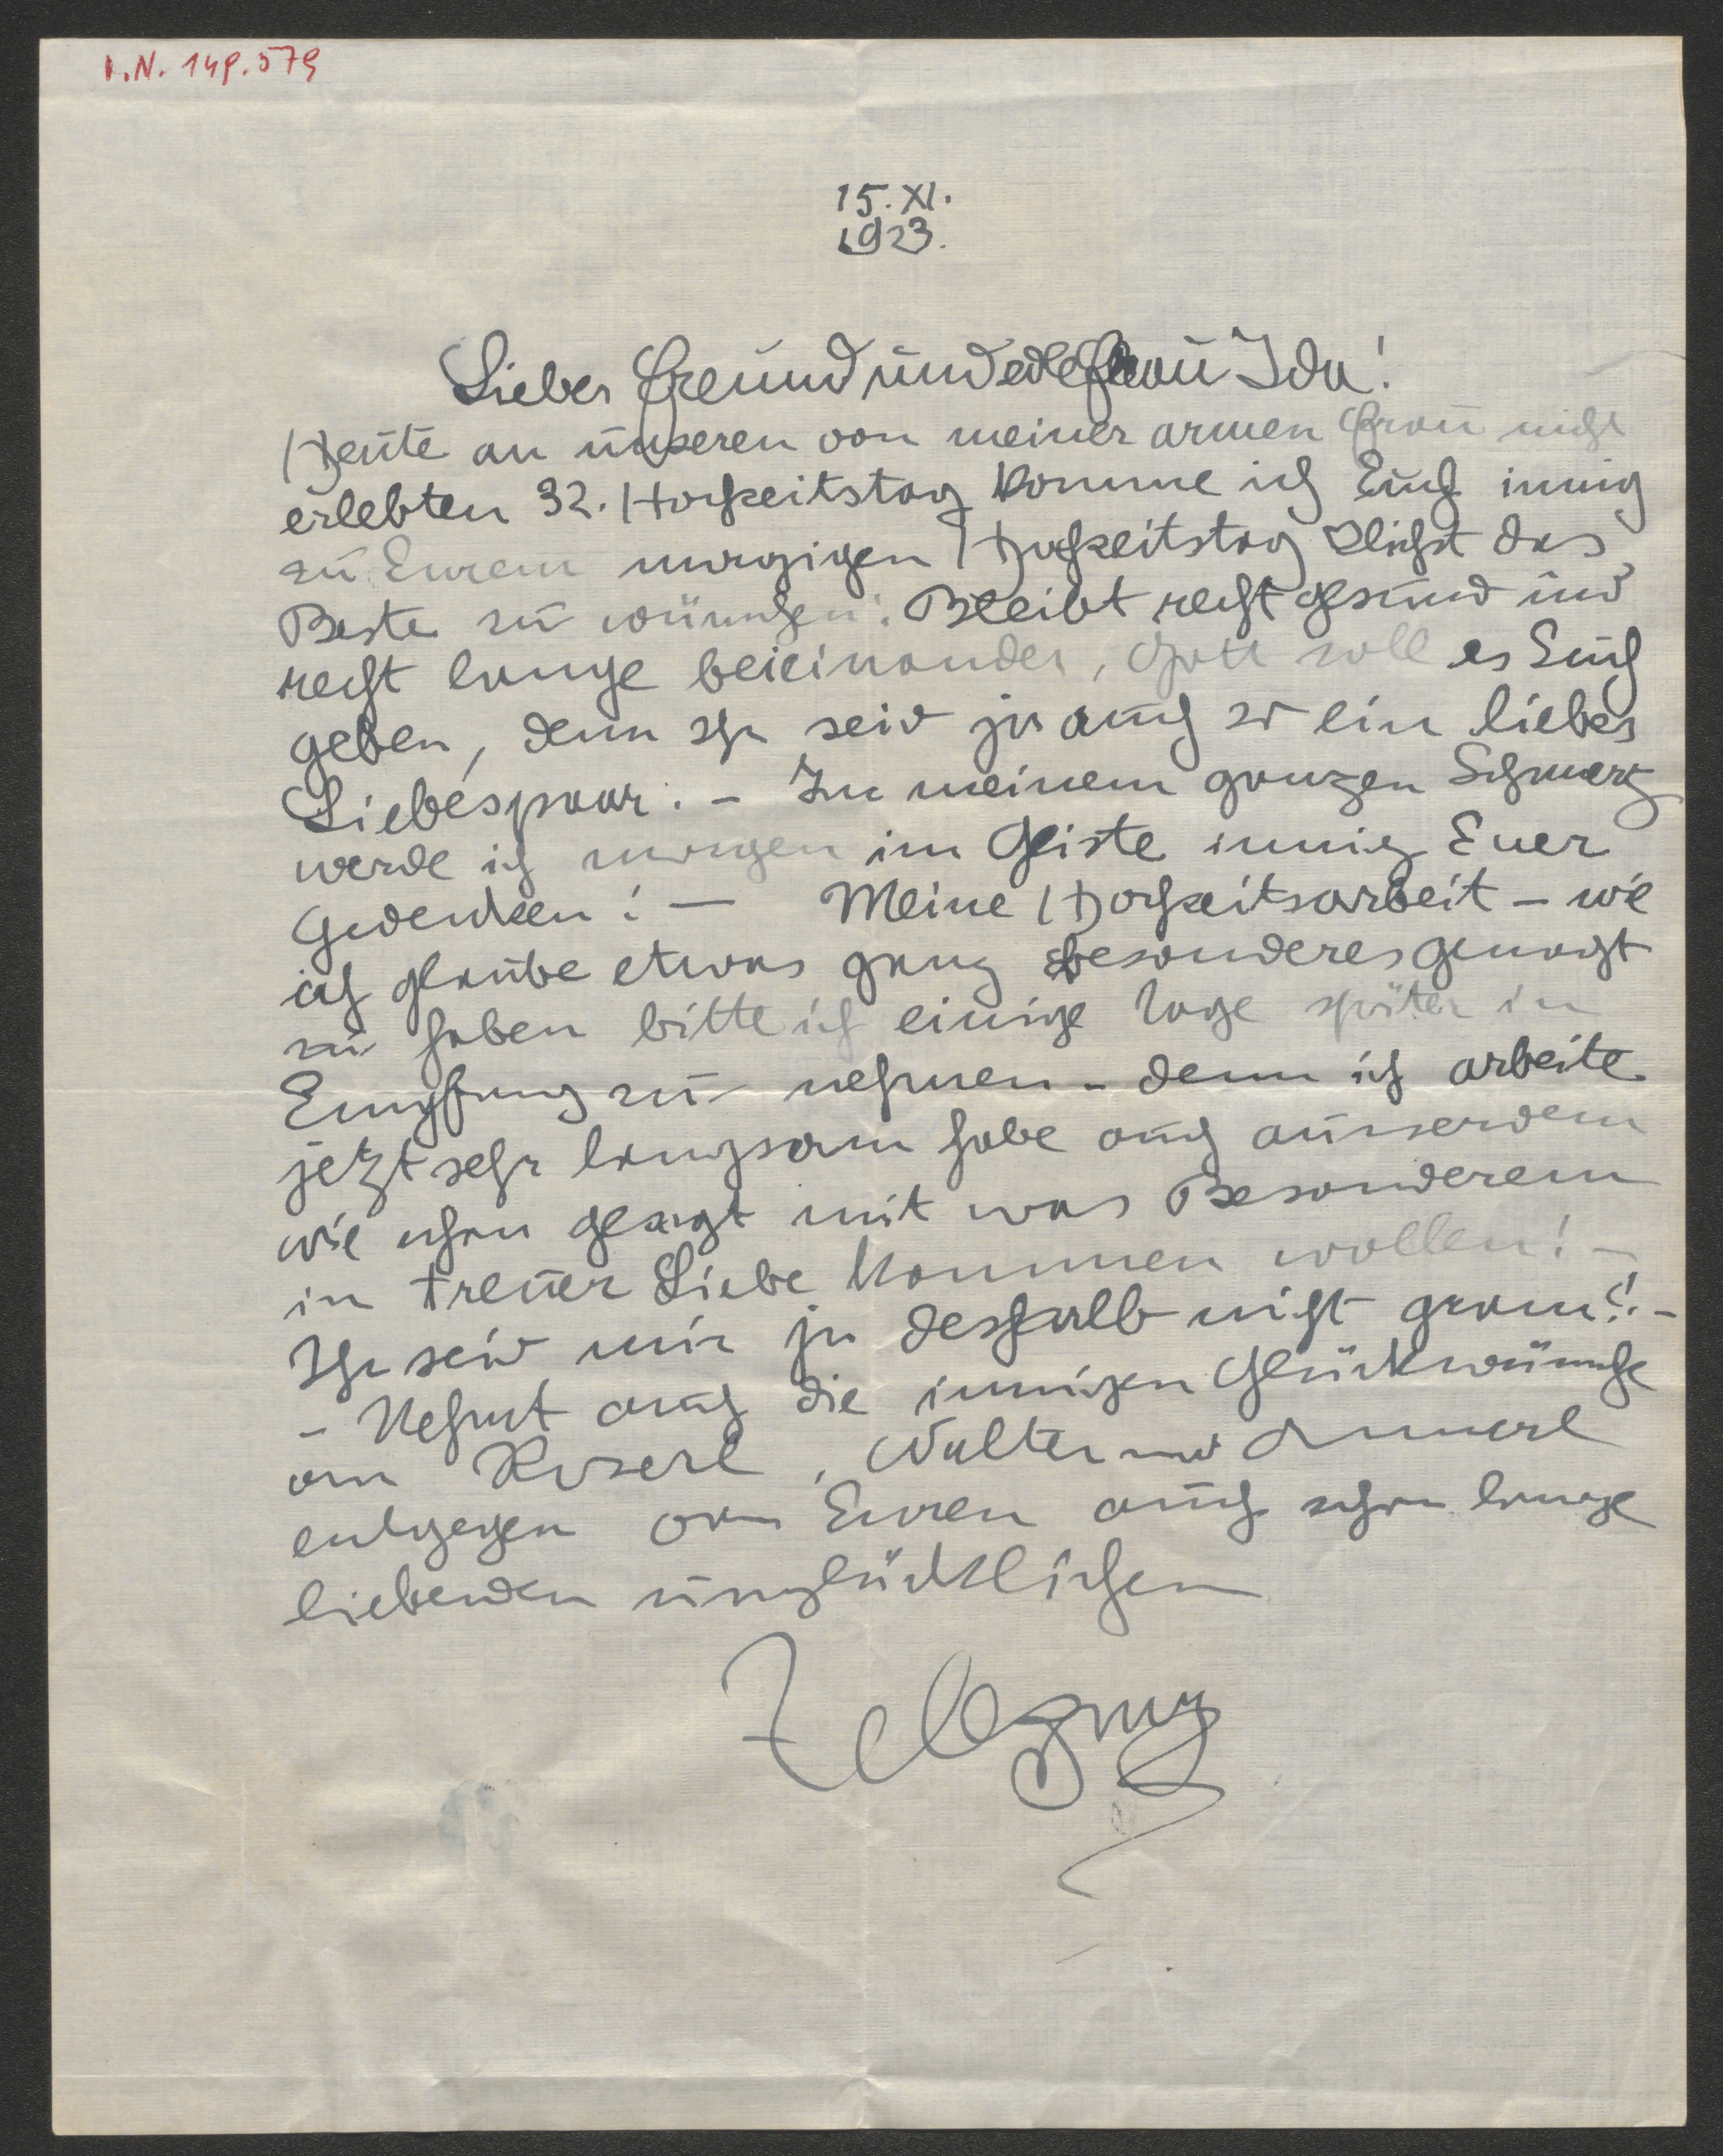 I.N. 149.579
15. XI.
1923.
Lieber Freund und edle Frau Ida!
Heute an unseren von meiner armen Frau nicht
erlebten 32. Hochzeitstag komme ich Euch innig
zu Eurem morgigen Hochzeitstag das
Beste zu wünschen. Bleibt recht gesund und
recht lange beieinander, Gott soll es Euch
geben, denn Ihr seid ja auch so ein liebes
Liebespaar. – In meinem ganzen Schmerz
werde ich morgen im Geiste innig Euer
Gedenken! – Meine Hochzeitsarbeit – wie
ich glaube etwas ganz besonderes gemacht
zu haben bitte ich einige Tage später in
Empfang zu nehmen – denn ich arbeite
jetzt sehr langsam habe auch ausserdem
wie schon gesagt mit was Besonderem
in treuer Liebe kommen wollen! –
Ihr seid mir ja deshalb nicht gram?! –
– Nehmt auch die innigen Glückwünsche
von Roserl, Walter und Annerl
entgegen von Euren auch schon lange
liebenden unglücklichen
Zelezny